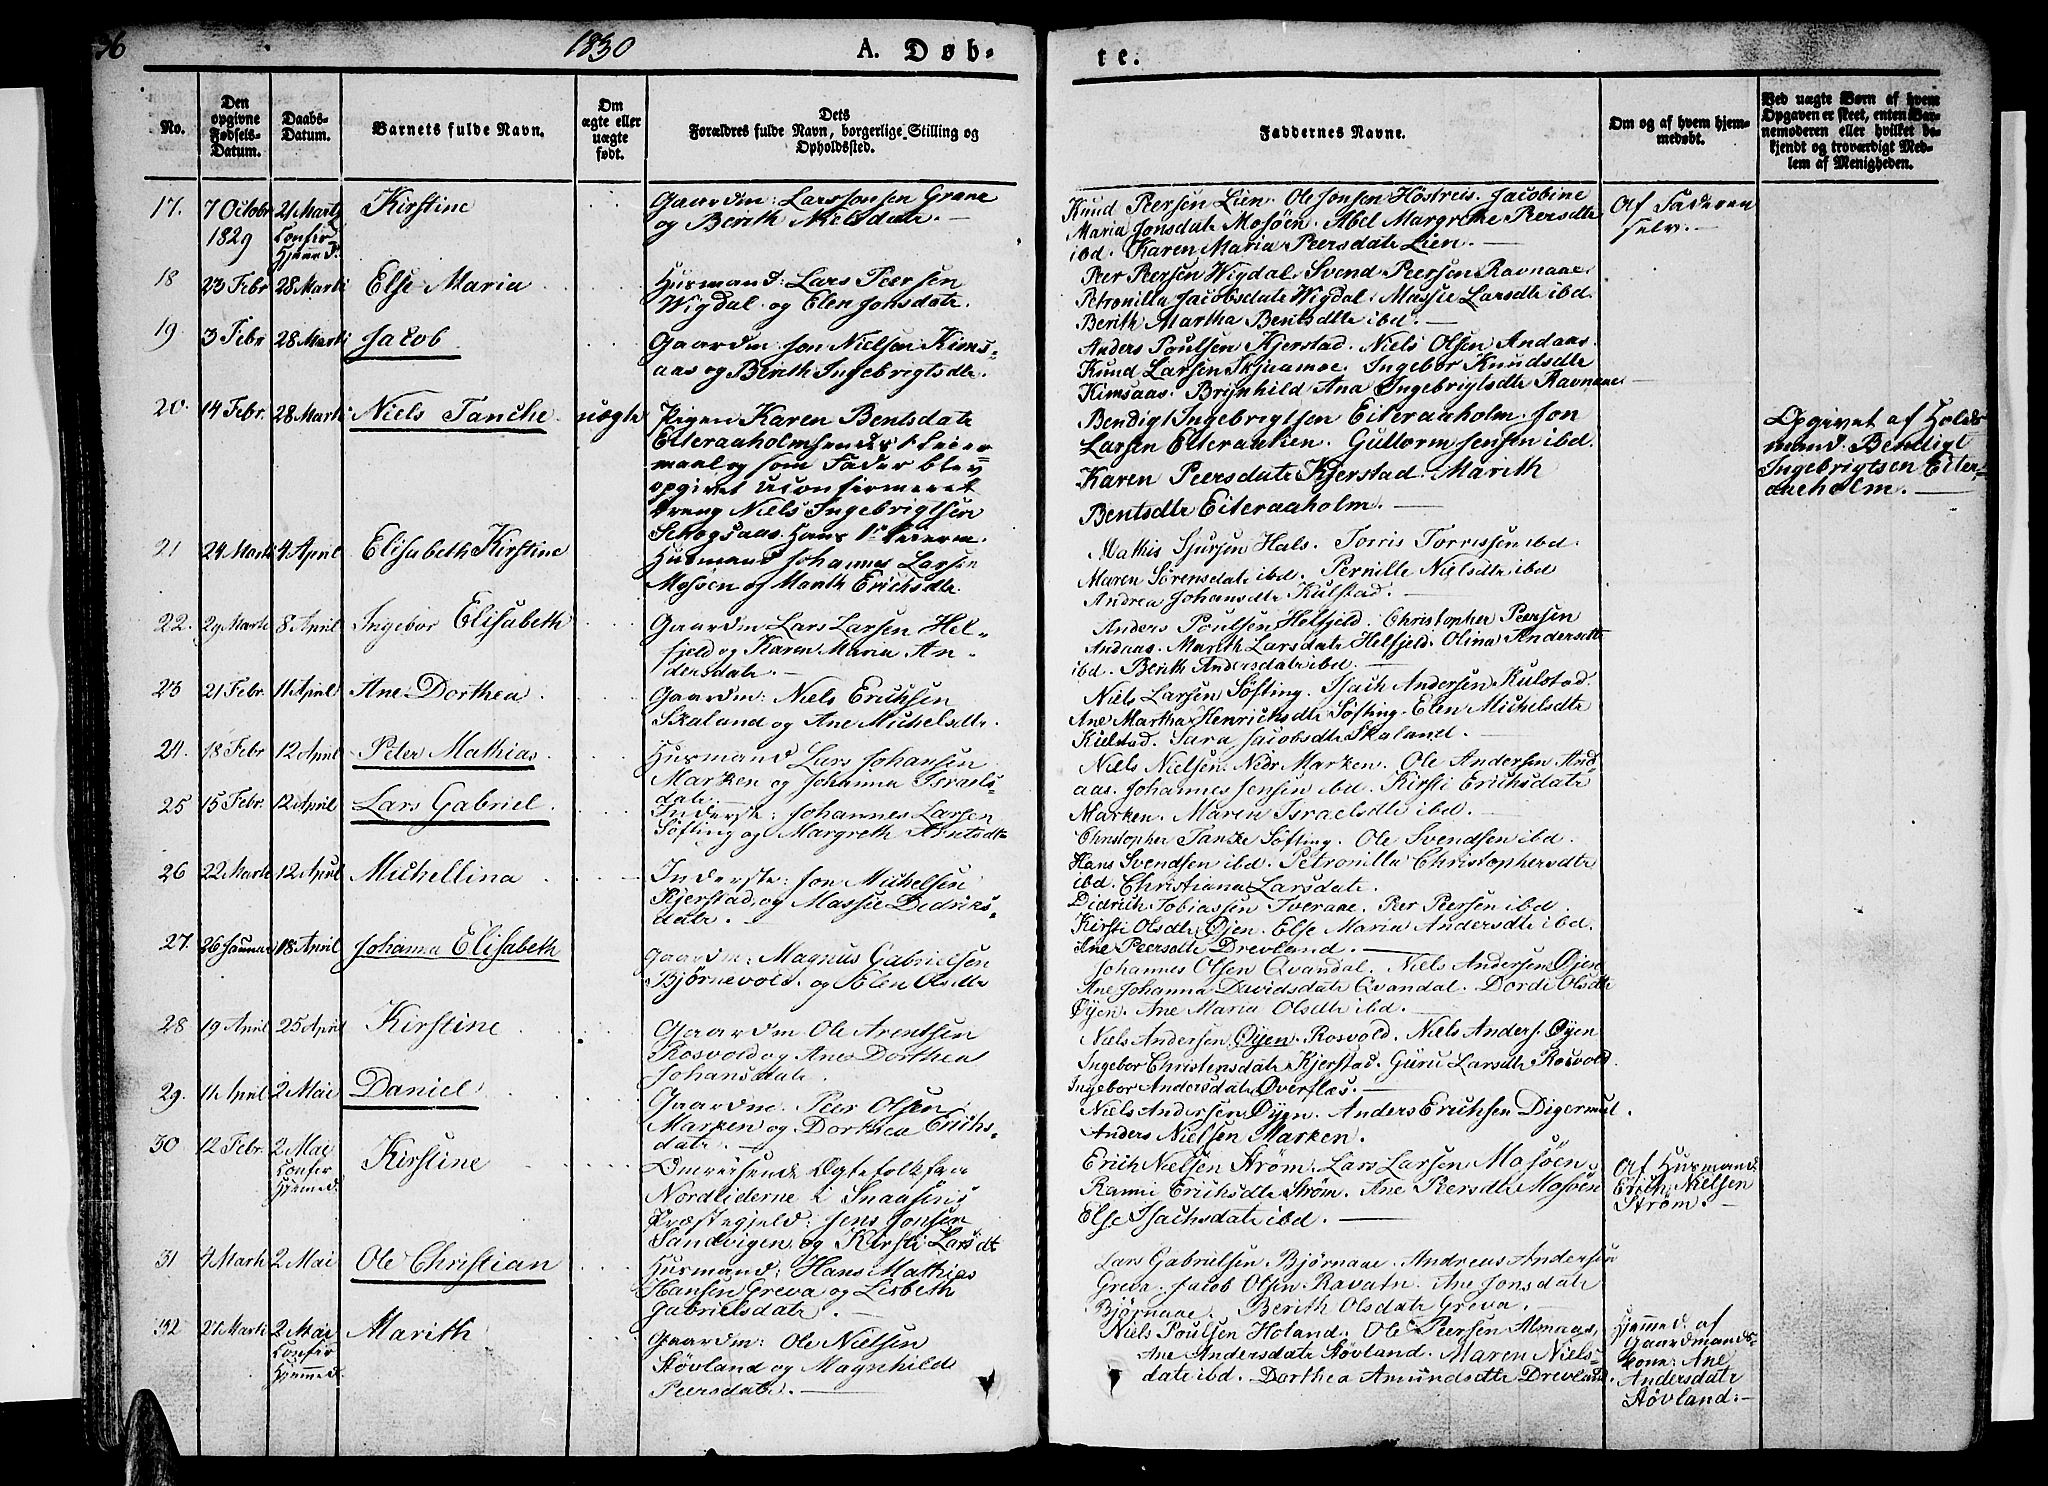 1830
A. Døb-
te.
No.
Den opgivne Fødsels-Datum.
Daabs-Datum.
Barnets fulde Navn.
Om ægte eller uægte født.
Dets Forældres fulde Navn, borgerlige Stilling og Opholdssted.
Faddernes Navne.
Om og af hvem hjemmedøbt.
Ved uægte Børn af hvem Opgaven er skeet, enten Barnemoderen eller hvilket bekjendt og troværdigt Medlem af Menigheden.
17. 7 Octobr 1829 21 Marts Confir Hjemed. Kirstine
Gaardm: Lars Jonsen Grane
og Berith Nielsdate.
Knud Peersen Lien. Ole Jonsen Höstreis. Jacobine
Maria Jonsdate Mosöen. Abel Margrethe Peersdte
ibd. Karen Maria Peersdate Lien.
Af Faderen
selv.
18 23 Febr 28 Marti Else Maria
Husmand: Lars Peersen
Wigdal og Elen Jonsdate.
Peer Peersen Wigdal. Svend Peersen Ravnaae.
Petronilla Jacobsdate Wigdal. Massie Larsdte ibd.
Berith Martha Bentsdte ibd.
19. 3 Febr 28 Marti Jacob
Gaardm Jon Nielsen Kims-
aas og Berith Ingebrigtsdte.
Anders Poulsen Kjerstad. Niels Olsen Andaas.
Knud Larsen Skjuamoe. Ingebor Knudsdte
Kimsaas. Brynhild Ana Ingebrigtsdte Ravnaae
20. 14 Febr. 28 Marti Niels Tanche uægte
Pigen Karen Bentsdate
Eiteraaholm hendes 1 Leier-
maal og som Fader blev
opgivet uconfirmeret
Dreng Niels Ingebrigtsen
Schogsaas. Hans 1ste Leierm.
Bendigt Ingebrigtsen Eiteraaholm. Jon
Larsen Eiteraalien. Guttorm Jensen ibd.
Karen Peersdate Kjerstad. Marith
Bentsdte Eiteraaholm.
Opgivet af Holds
mand: Bendigt
Ingebrigtsen Eiter-
aaeholm.
21 24 Marti 4 April Elisabeth Kirstine
Husmand Johannes Larsen
Mosöen og Marith Erichsdte.
Mathis Sjursen Hals. Torris Torrissen ibd.
Maren Sörensdate ibd. Pernille Nielsdte ibd
Andrea Johansdte Kulstad.
22. 29 Marti 8 April Ingebor Elisabeth
Gaardm Lars Larsen Hel-
fjeld og Karen Maria An-
dersdate.
Anders Poulsen Helfjeld. Christopher Peersen
Andaas. Marith Larsdate Helfjeld. Olina Andersdte
ibd. Berith Andersdate ibd.
23 21 Febr. 11 April Ane Dorthea
Gaardm: Niels Erichsen
Skaland og Ane Michelsdte.
Niels Larsen Söfting. Isach Andersen Kulstad.
Ane Martha Henrichsdte Söfting. Elen Michelsdte
Kielstad. Sara Jacobsdte Skaland.
24. 18 Febr 12 April Peter Mathias
Husmand Lars Johansen
Marken og Johanna Israels-
date.
Niels Nielsen. Nedr Marken. Ole Andersen And
aas. Johannes Jensen ibd. Kirsti Erichsdate
Marken. Maren Israelsdte ibd.
25 15 Febr. 12 April Lars Gabriel.
Inderste: Johannes Larsen
Söfting og Margreth Arntsdte
Christopher Tanke Söfting. Ole Svendsen ibd.
Hans Svendsen ibd. Petronilla Christophersdte
ibd. Christiana Larsdate.
26 22 Marti 12 April Michellina
Inderste: Jon Michelsen
Kjerstad og Massie Didriks-
date.
Didrich Tobiassen Tveraae. Peer Peersen ibd.
Kirsti Olsdte Øjen. Else Maria Andersdte ibd.
Ane Peersdte Drevland.
27. 26 Januar 18 April Johanna Elisabeth
Gaardm: Magnus Gabrielsen
Björnevold. og Solen Olsdte
Johannes Olsen Qvandal. Niels Andersen Øjen
Ane Johanna Davidsdate Qvandal. Dordi Olsdte
Øyen. Ane Maria Olsdte ibd.
28 19 April 25 April Kirstine
Gaardm Ole Arentsen
Rosvold og Ane Dorthea
Johansdate.
Niels Andersen Øyen. Rosvold. Niels Anders. Øyen
Ingebor Christensdate Kjerstad. Guru Larsdte Rosvold.
Ingebor Andersdate Øverflæs.
29. 11 April 2 Mai Daniel
Gaardm: Peer Olsen
Marken og Dorthea Erichs-
date.
Niels Andersen Øyen. Anders Erichsen Digermul.
Anders Nielsen Marken.
30 12 Febr. 2 Mai Confir Hjemed. Kirstine
Omreisende Ægtefolk fra
Nordliderne i Snaasens
Præstegjeld: Jens Jonsen
Sandvigen og Kirsti Larsdt
Erich Nielsen Ström. Lars Larsen Mosöen
Ranni Erichsdte Ström. Ane Peersdte Mosöen
Else Isachsdate ibd.
Af Husmand
Erich Nielsen
Ström.
31 4 Marti 2 Mai Ole Christian
Husmand: Hans Mathias
Hansen Greva og Lisbeth
Gabrielsdate.
Lars Gabrielsen Björnaae. Andreas Andersen
Greva. Jacob Olsen Ravatn. Ane Jonsdate
Björnaae. Berith Olsdate Greva.
32 21 Marti 2 Mai Confir Hjemmed. Marith
Gaardm: Ole Nielsen
Stövland og Magnhild
Peersdate.
Niels Poulsen Holand. Ole Peersen Almaas.
Ane Andersdate Stövland. Maren Niels-
date ibd. Dorthea Amundsdte Drevland.
Hjemmed. af
Gaardmands-
kone: Ane
Andersdate
Stövland.